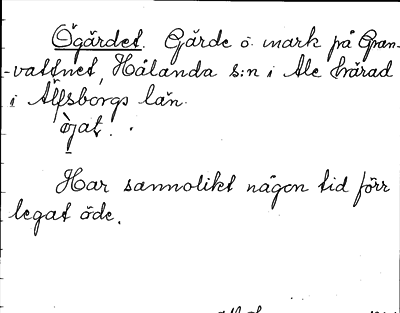 Ögärdet. Gärde o. mark på Gran-
-vattnet, Hålanda s:n i Ale härad
i Älfsborgs län.
òjat.
Har sannolikt någon tid förr
legat öde.